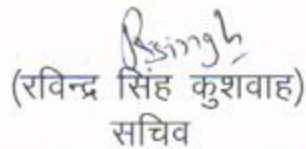 Rsingh
(रविन्द्र सिंह कुशवाह)
सचिव